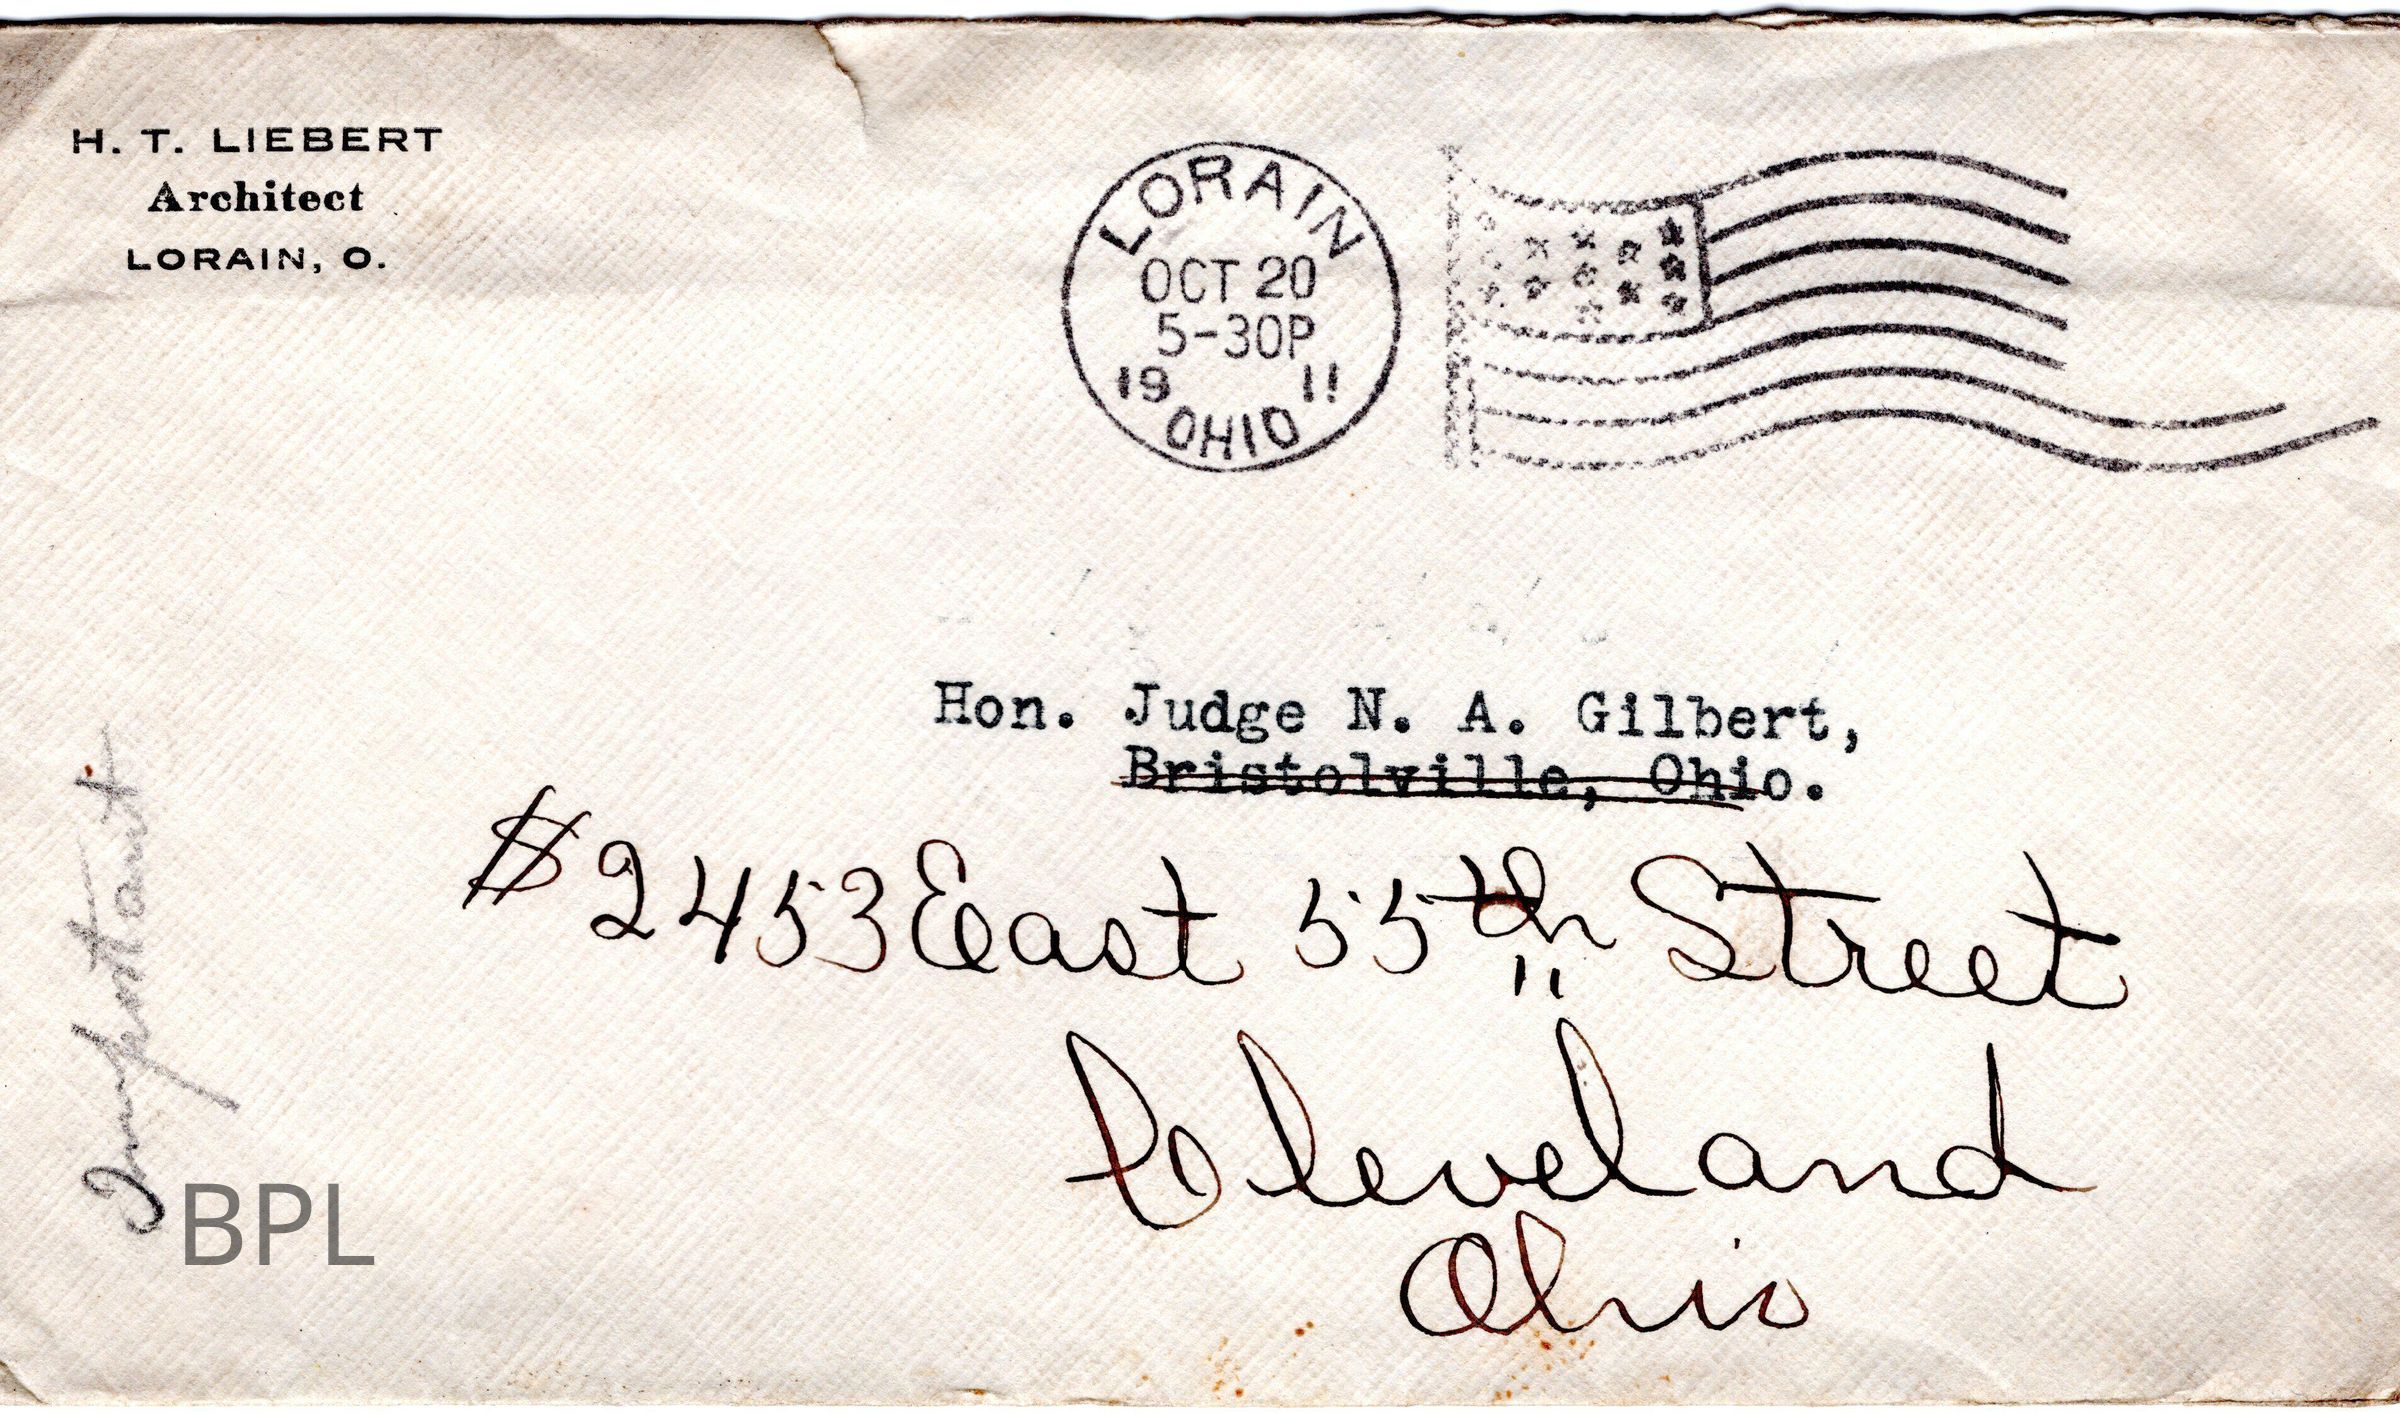 H. T. LIEBERT
Architect
LORAIN, O.
LORAIN
OCT 20
5-30P
19 11
OHIO
Hon. Judge N. A. Gilbert,
Bristolville, Ohio.
2453 East 55th Street
Cleveland
Ohio
Important
BPL